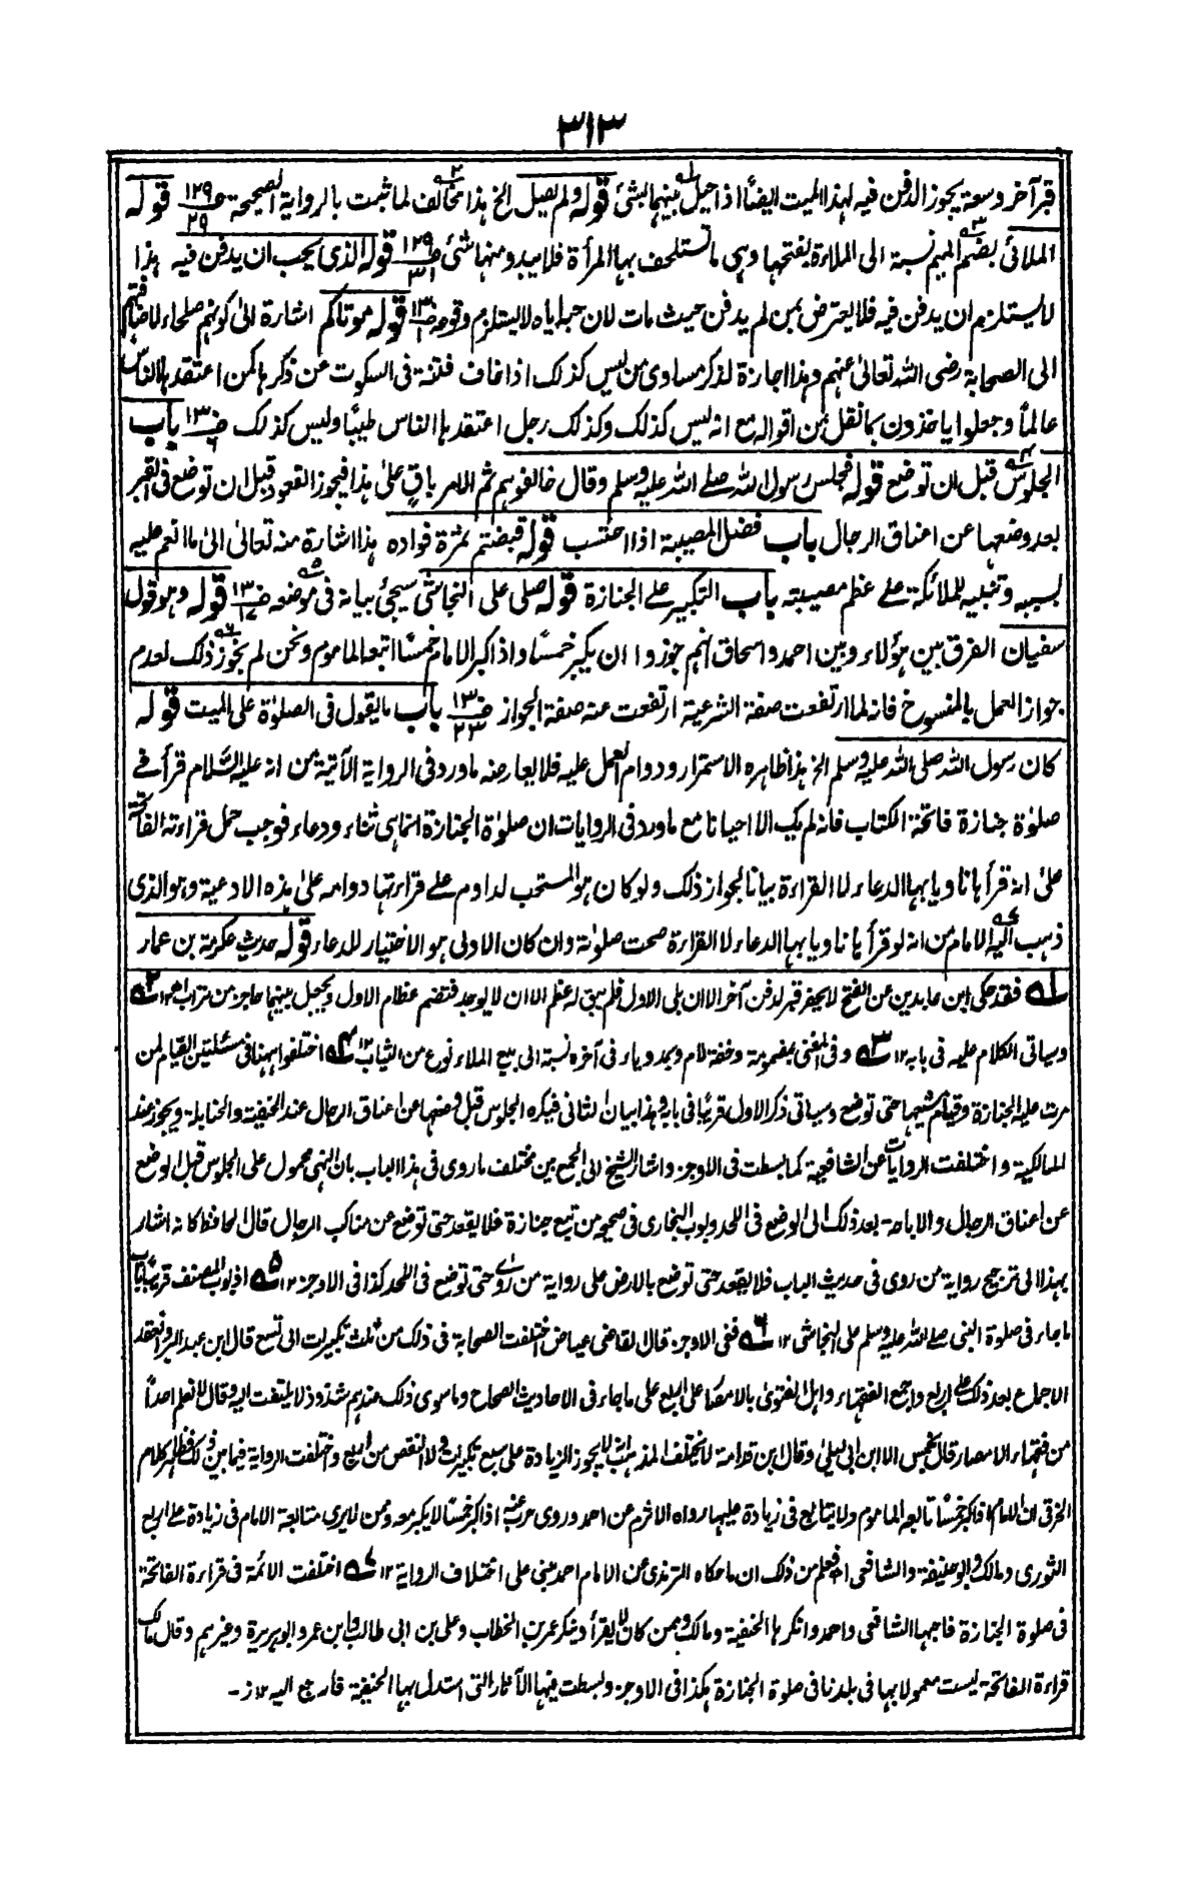 ٣١٣
قبر آخر وسعة يجوز الدفن فيه لهذا الميت ايضًا اذا حيل بينهما بشئ قوله ولم يصل الخ هذا مخالف لما ثبت بالرواية الصحيحة صـ ١٢٩ ٢٩ قوله
الملائى بضم الميم نسبة الى الملاءة يفتحها وهى ما تستلحف بها المرأة فلا يبدو منها شئ صـ ١٢٩ ٣١ قوله الذى يحب ان يدفن فيه هذا
لا يستلزم ان يدفن فيه فلا يعترض بمن لم يدفن حيث مات لان حبه اياه لا يستلزم وقوعه صـ ١٣٠ ١ قوله موتاكم اشارة الى كونهم صلحاء لاضافتهم
الى الصحابة رضى الله تعالىٰ عنهم وهذا اجازة لذكر مساوى من ليس كذلك اذا خاف فتنة فى السكوت عن ذكرها كمن اعتقدها الناس
عالماً وجعلوا ياخذون بما نقل من اقواله مع انه ليس كذلك وكذلك رجل اعتقدها الناس طيبًا وليس كذلك صـ ١٣٠ ٦ باب
الجلوس قبل ان توضع قوله فجلس رسول الله صلے الله عليه وسلم وقال خالفوهم ثم الامر باقٍ علىٰ هذا فيجوز القعود قبل ان توضع فى القبر
بعد وضعها عن اعناق الرجال باب فضل المصيبة اذا احتسب قوله قبضتم ثمرة فواده هذا اشارة منه تعالىٰ الىٰ ما انعم عليه
بسببه وتنبيه للملائكة علے عظم مصيبته باب التكبير علے الجنازة قوله صلى على النجاشى سيجئ بيانه فى موضعه صـ ١٣٠ ١٧ قوله وهو قول
سفيان الفرق بين هؤلاء وبين احمد واسحاق انهم جوزوا ان يكبر خمسًا واذا كبر الامام خمسًا اتبعه الماموم ونحن لم نجوز ذلك لعدم
جواز العمل بالمنسوخ فانه لما ارتفعت صفة الشرعية ارتفعت عنه صفة الجواز صـ ١٣٠ ٢٣ باب ما يقول فى الصلوٰة على الميت قوله
كان رسول الله صلى الله عليه وسلم الخ هذا ظاهره الاستمرار ودوام العمل عليه فلا يعارضه ما ورد فى الرواية الآتية من انه عليه السَّلام قرأ فے
صلوٰة جنازة فاتحة الكتاب فانه لم يك الا احيانا مع ما ورد فى الروايات ان صلوٰة الجنازة انما هى ثناء ودعاء فوجب حمل قراءته الفاتحة
علىٰ انه قرأها ناويا بها الدعاء لا القراءة بيانا لجواز ذلك ولو كان هو المستحب لداوم علے قراءتها دوامه علىٰ هذه الادعية وهو الذى
ذهب اليه الامام من انه لو قرأها ناويا بها الدعاء لا القراءة صحت صلوٰته وان كان الاولى هو الاختيار للدعاء قوله حديث عكرمة بن عمار
١ـه فقد حكى ابن عابدين عن الفتح لا يحفر قبر لدفن آخر الا ان بلى الاول فلم يبق له عظم الا ان لا يوجد فتضم عظام الاول ويجعل بينهما حاجز من تراب اهـ ١٢ ٢ـه
وسياتى الكلام عليه فى بابه ١٢ ٣ـه وفى المغنى بمضمومة وخفة لام وبمد وياء فى آخره نسبة الى بيع الملاء نوع من الثياب ١٢ ٤ـه اختلفوا ههنا فى مسئلتين القيام لمن
مرت عليه الجنازة وقيام مشيعها حتى توضع وسياتى ذكر الاول قريبًا فى بابه وهذا بيان الثانى فيكره الجلوس قبل وضعها عن اعناق الرجال عند الحنفية والحنابلة ويجوز عند
المالكية واختلفت الروايات عن الشافعية كما بسطت فى الاوجز واشار الشيخ الى الجمع بين مختلف ما روى فى هذا الباب بان النهى محمول على الجلوس قبل الوضع
عن اعناق الرجال والاباحة بعد ذلك الى الوضع فى اللحد وبوب البخارى فى صحيحه من تبع جنازة فلا يقعد حتى توضع عن مناكب الرجال قال الحافظ كانه اشار
بهذا الى ترجيح رواية من روى فى حديث الباب فلا يقعد حتى توضع بالارض على رواية من روى حتى توضع فى اللحد كذا فى الاوجز ١٢ ٥ـه اذ بوب المصنف قريبًا باب
ما جاء فى صلوة النبى صلے الله عليه وسلم على النجاشى ١٢ ٦ـه ففى الاوجز قال القاضى عياض اختلفت الصحابة فى ذلك من ثلث تكبيرات الى تسع قال ابن عبد البر وانعقد
الاجماع بعد ذلك على اربع واجمع الفقهاء واهل الفتوىٰ بالامصار على اربع على ما جاء فى الاحاديث الصحاح وما سوى ذلك عندهم شذوذ لا يلتفت اليه وقال لا نعلم احداً
من فقهاء الامصار قال بخمس الا ابن ابى ليلىٰ وقال ابن قدامة لا يختلف المذهب انه لا يجوز الزيادة على سبع تكبيرات ولا النقص من اربع واختلفت الرواية فيما بين ذلك فظاهر كلام
الخرقى ان الامام اذا كبر خمسًا تابعه الماموم ولا يتابع فى زيادة عليها رواه الاثرم عن احمد وروى حرب عنه اذا كبر خمسًا لا يكبر معه وممن لا يرى متابعة الامام فى زيادة على اربع
الثورى ومالك وابو حنيفة والشافعى اهـ فعلم من ذلك ان ما حكاه الترمذى عن الامام احمد مبنى على اختلاف الرواية ١٢ ٧ـه اختلفت الائمة فى قراءة الفاتحة
فى صلوة الجنازة فاوجبها الشافعى واحمد وانكرها الحنفية ومالك وممن كان لا يقرأ وينكر عمر بن الخطاب وعلى بن ابى طالب وابن عمر وابو هريرة وغيرهم وقال مالك
قراءة الفاتحة ليست معمولا بها فى بلدنا فى صلوة الجنازة هكذا فى الاوجز وبسطت فيها الآثار التى استدل بها الحنفية فارجع اليه ١٢ ز-